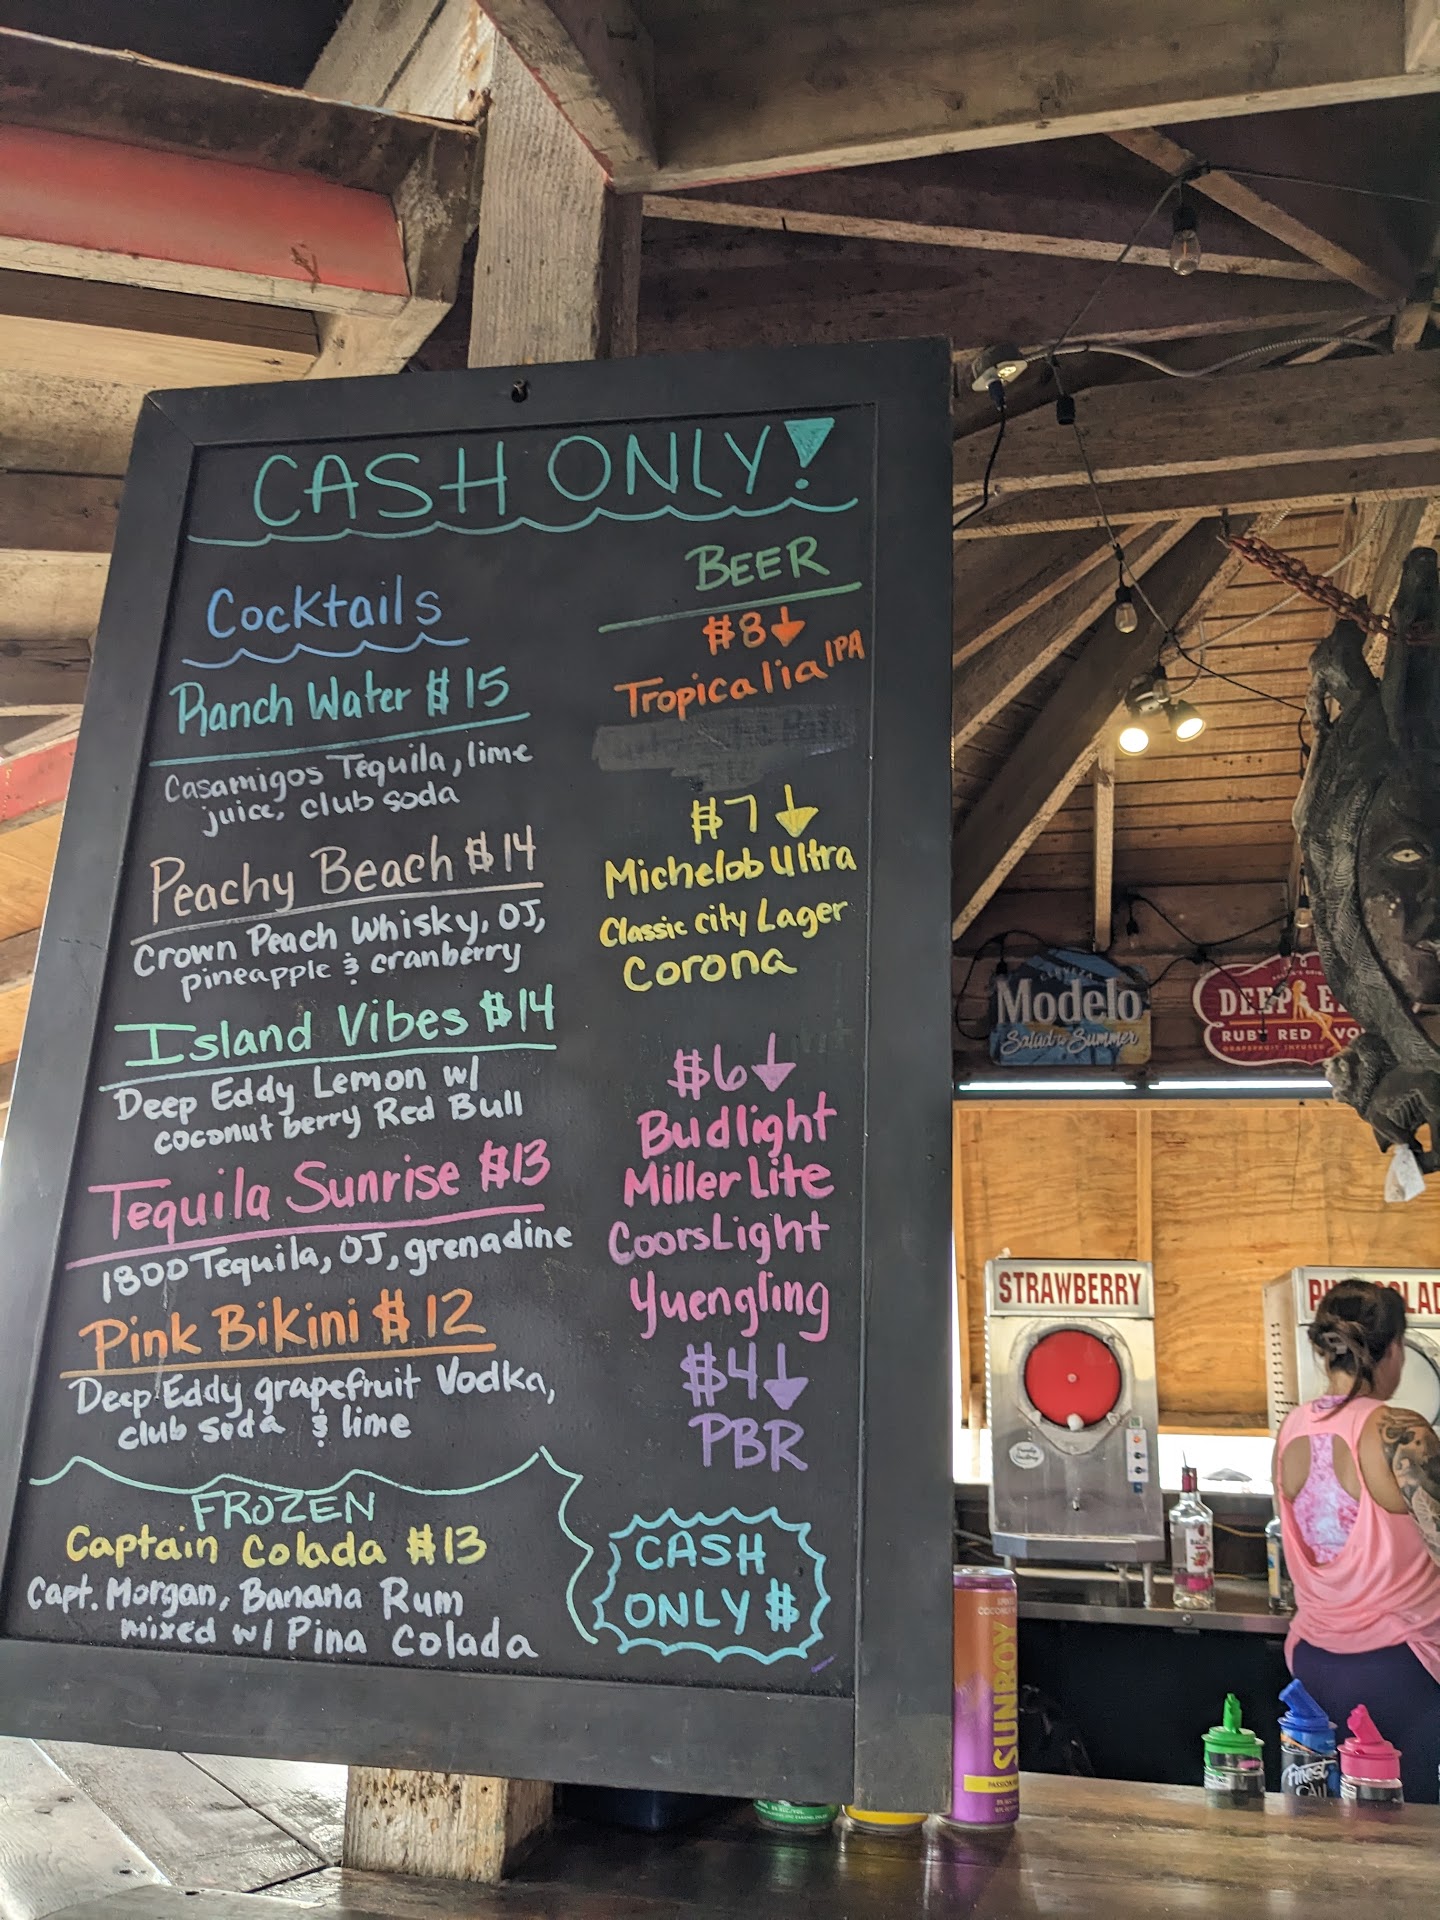 CASH ONLY!
Cocktails
Ranch Water $15
Casamigos Tequila, lime
juice, club soda
Peachy Beach $14
Crown Peach Whisky, OJ,
pineapple & cranberry
Island Vibes $14
Deep Eddy Lemon w/
coconut berry Red Bull
Tequila Sunrise $13
1800 Tequila, OJ, grenadine
Pink Bikini $12
Deep Eddy grapefruit Vodka,
club soda & lime
FROZEN
Captain Colada $13
Capt. Morgan, Banana Rum
mixed w/ Pina Colada
BEER
$8↓
Tropicalia IPA
$7↓
Michelob Ultra
Classic city Lager
Corona
$6↓
Budlight
Miller Lite
CoorsLight
Yuengling
$4↓
PBR
CASH
ONLY $
CERVEZA
Modelo
Salud to Summer
DEEP E
RUBY RED VO
STRAWBERRY
SUNBOY
Finest